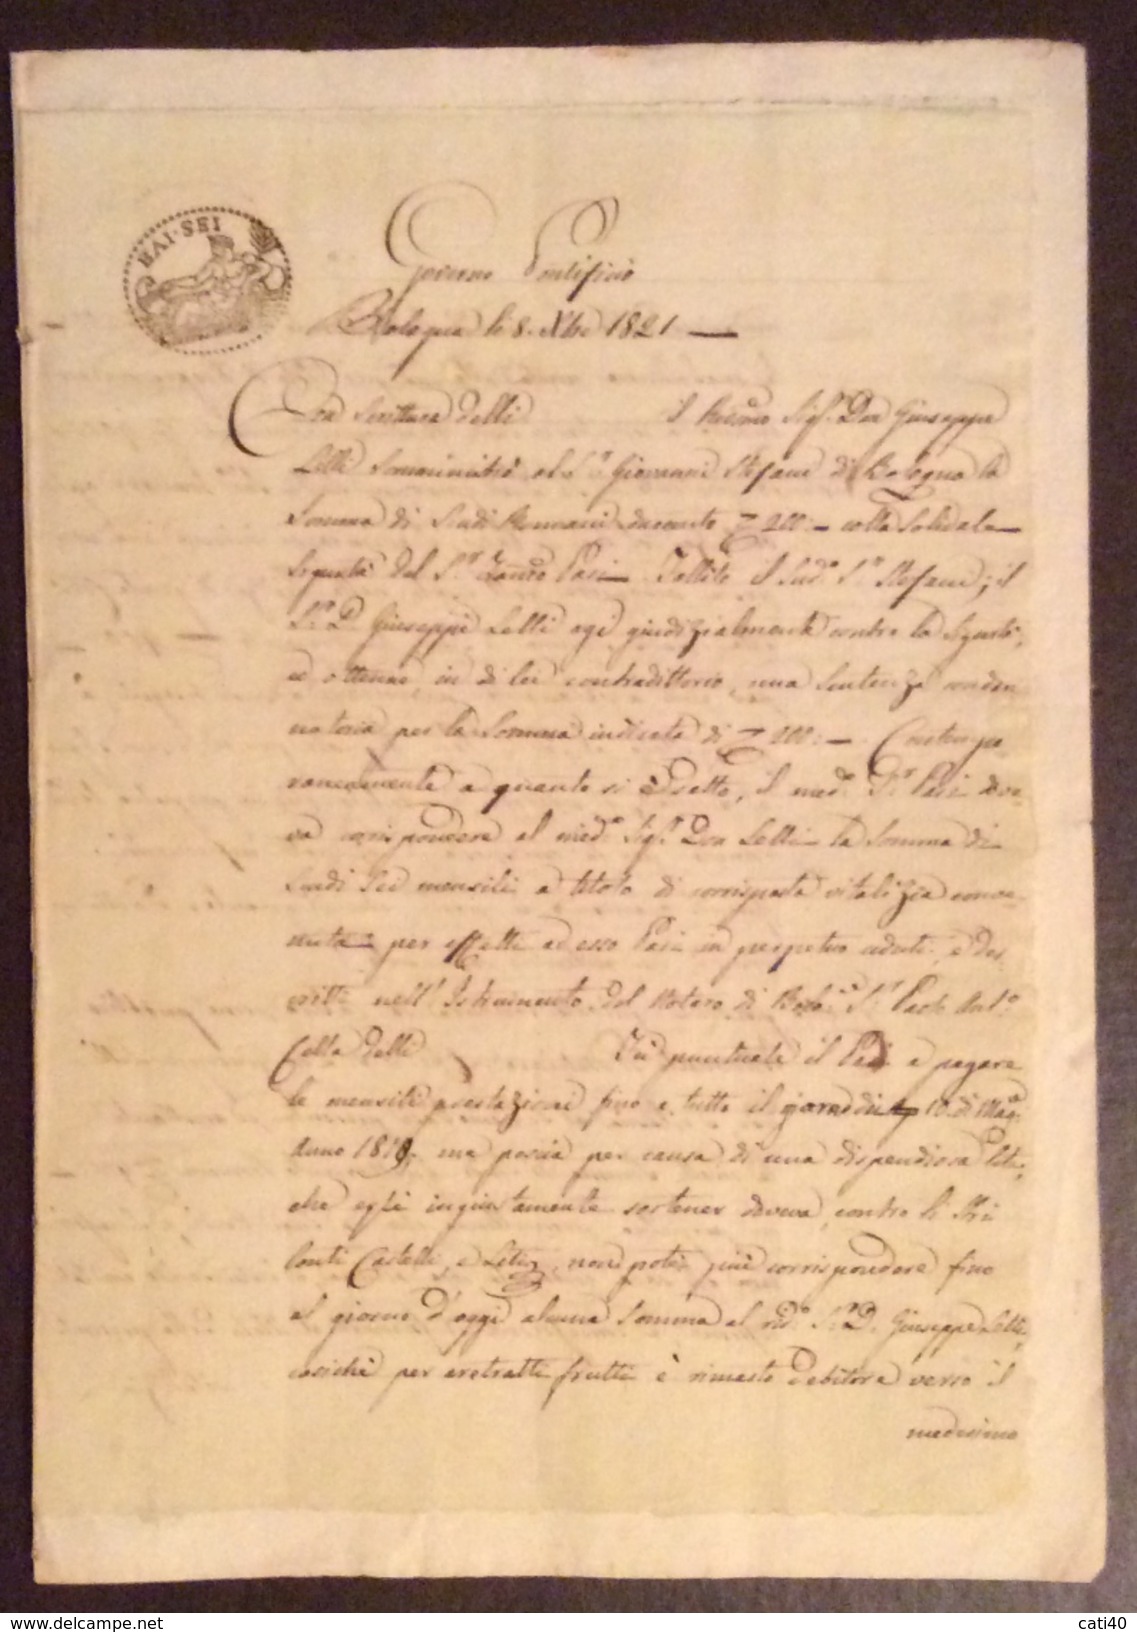 BAI·SEI
Governo Pontificio
Bologna li 8. Xbre 1821 —
Con Scrittura delli il Rdo Sig.r Don Giuseppe
Lelli somministrò al S.r Giovanni Stefani di Bologna la
Somma di Scudi Romani duecento 200:— colla solidale
sigurtà del S.r Pasi. Fallito il Sud.o S.r Stefani; il
S.r D. Giuseppe Lelli agì giudizialmente contro la Sigurtà,
e ottenne, in di lei contradittorio, una Sentenza conden
natoria per la Somma indicata di 200:— Contempo
raneamente a quanto si è detto, il med.o S.r Pasi dove
va corrispondere al med.o Sig.r Don Lelli la Somma di
Scudi Sei mensili a titolo di corrisposta vitalizia conve
nuta per effetti ad esso Pasi in perpetuo ceduti, e des
critti nell' Istrumento del Notaro di Bol.a S.r Paolo Ant.o
Cella delli Fù puntuale il Pasi a pagare
le mensili prestazioni fino a tutto il giorno di 10. di Mag.o
Anno 1819. ma poscia per causa di una dispendiosa Lite,
che egli ingiustamente sostener doveva, contro li
Conti Castelli, e non potè più corrispondere fino
al giorno d'oggi alcuna Somma al rid.o S.r D. Giuseppe Lelli,
cosichè per aretratti frutti è rimasto debitore verso il
medesimo
www.delcampe.net
cati40